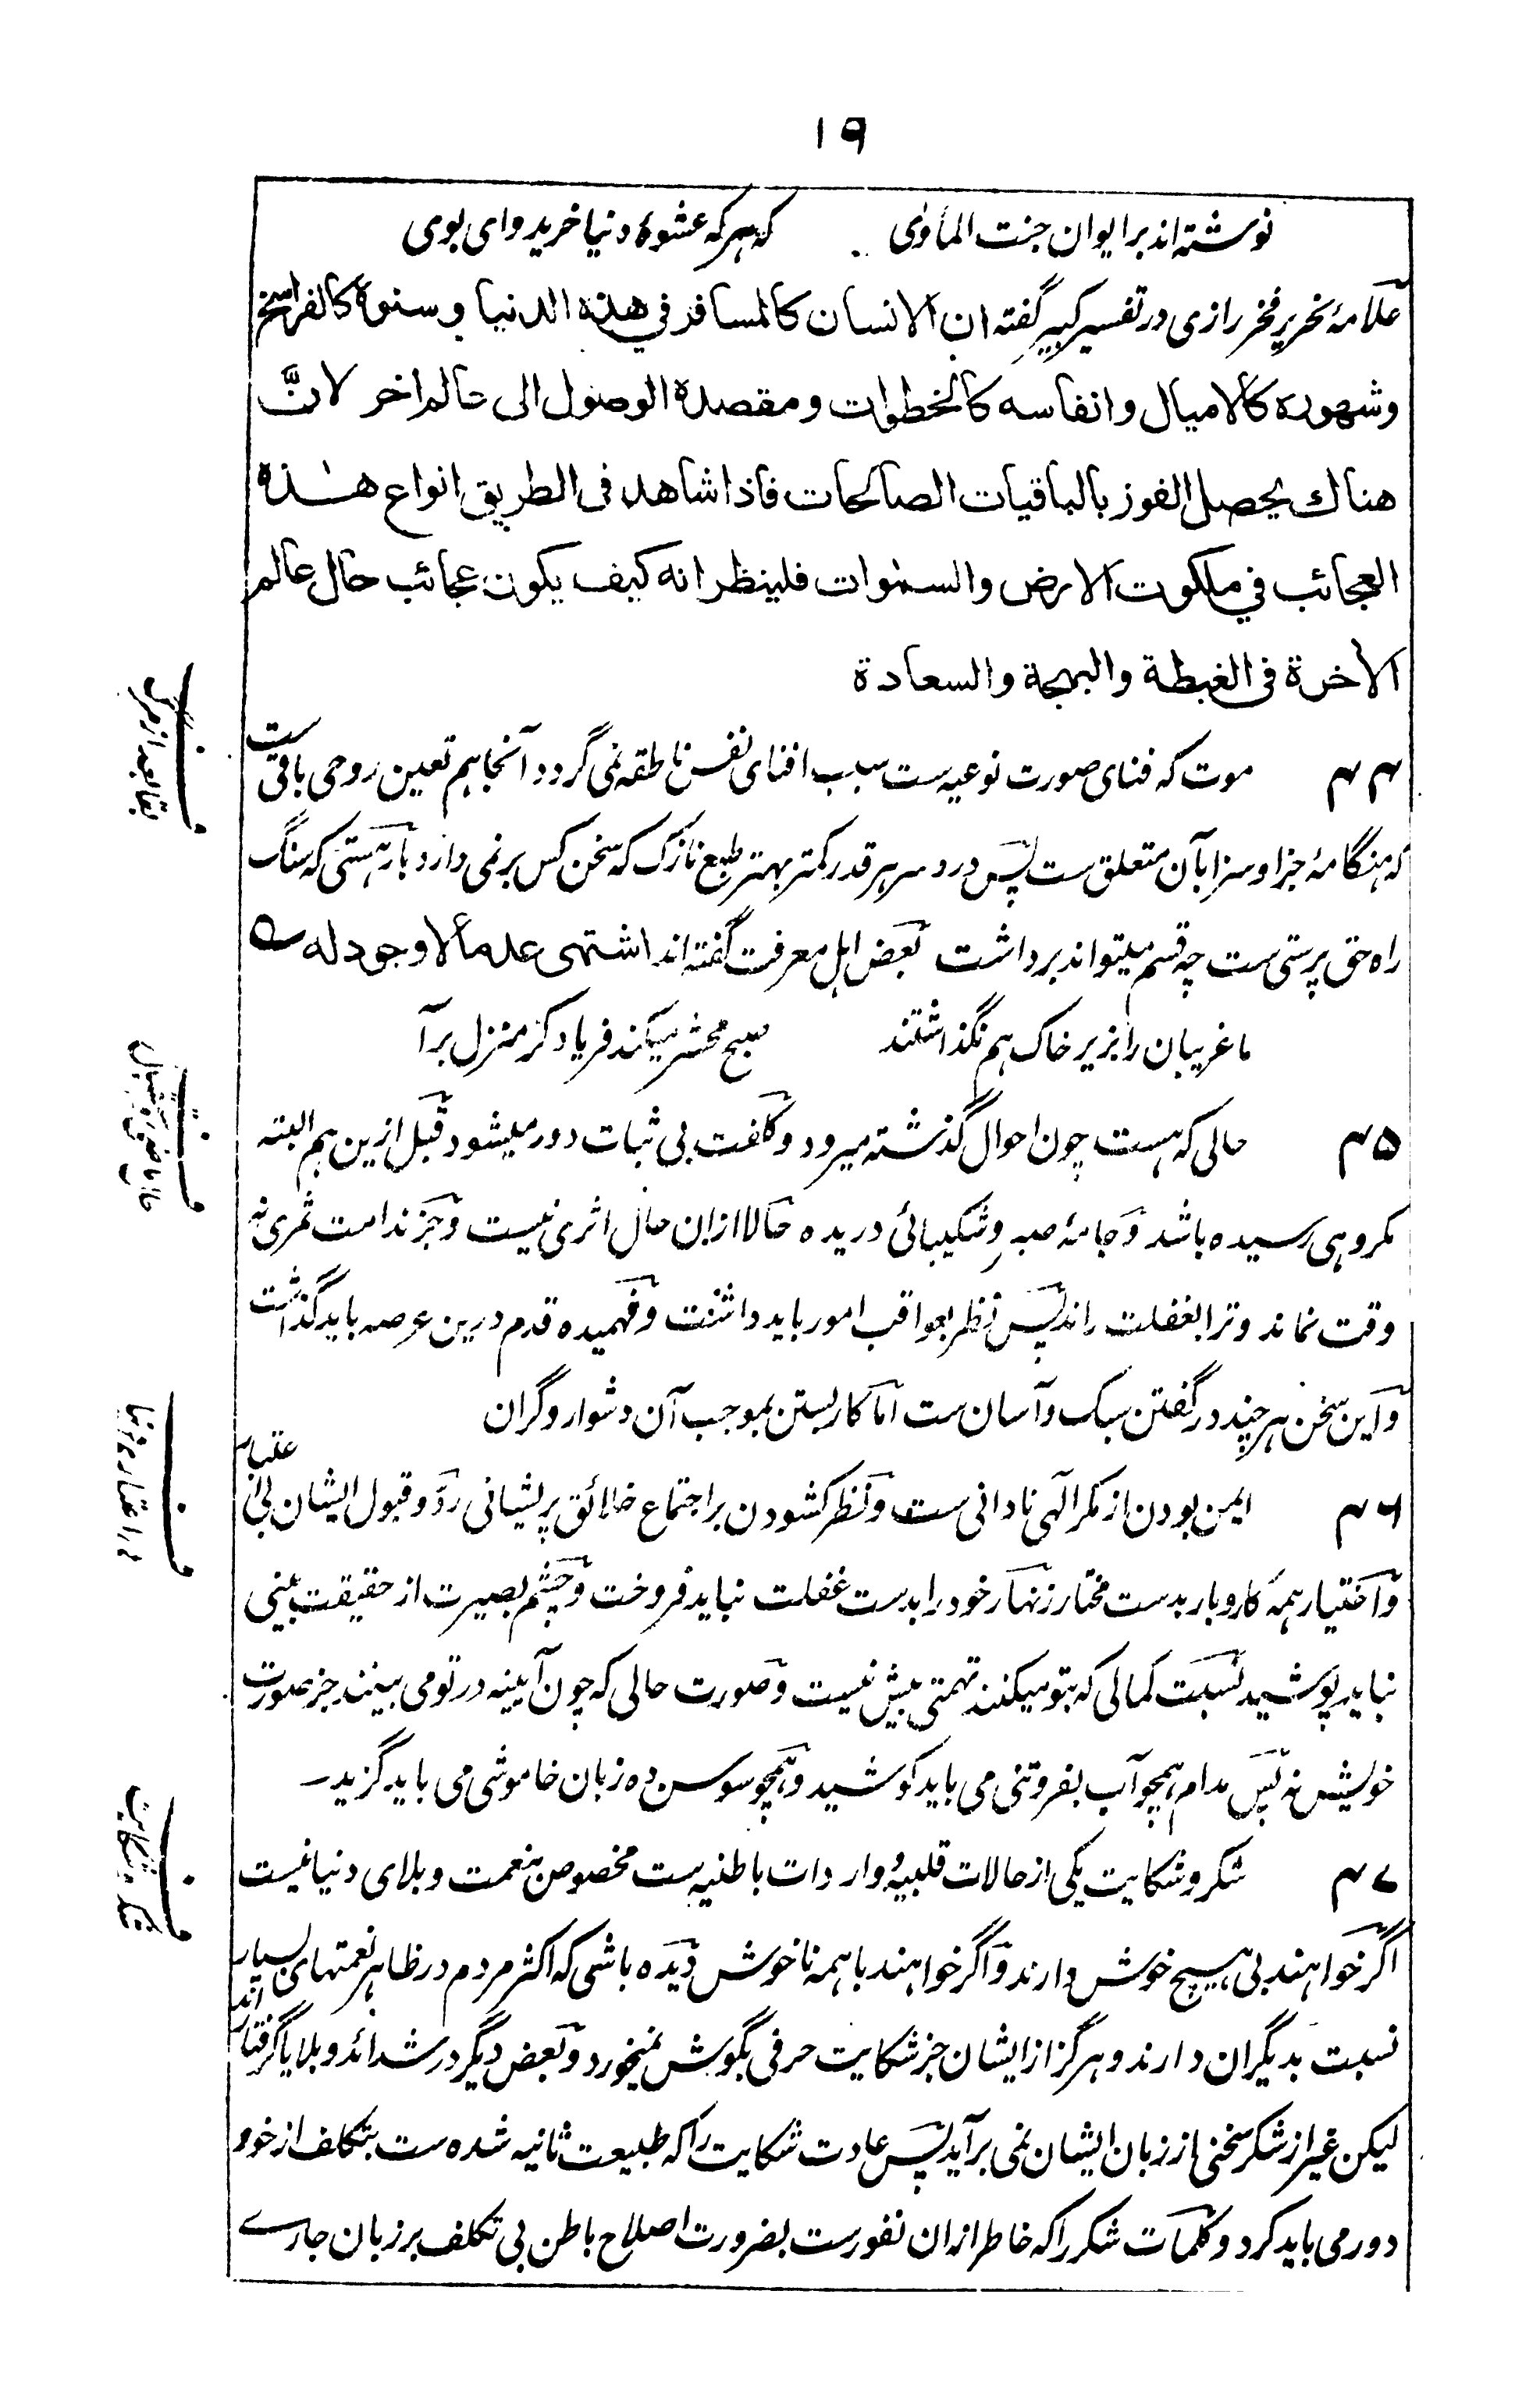 ۱۹
نوشته‌اند بر ایوان جنت الماوٰی که هر که عشوهٔ دنیا خرید وای بوی
علامهٔ نحریر فخر رازی در تفسیر کبیر گفته ان الانسان کالمسافر في هذه الدنيا وسنوه کالفراسخ
وشهوره کالامیال وانفاسه کالخطوات ومقصده الوصول الی عالم اخر لانَّ
هناك یحصل الفوز بالباقیات الصالحات فاذا شاهد فی الطریق انواع هٰذه
العجائب في ملکوت الارض والسمٰوات فلینظر انه کیف یکون عجائب حال عالم
الاخرة فی الغبطة والبهجة والسعادة
۴۴ موت که فنای صورت نوعیه‌ست سبب افنای نفس ناطقه نمی گردد آنجا هم تعین روحی باقیست
که هنگامهٔ جزا و سزا بآن متعلق ست پس درد سر هر قدر کمتر بهتر طبع نازک که سخن کس بر نمی دارد بار هستی که سنگ
راه حق پرستی ست چه قسم میتواند برداشت بعض اهل معرفت گفته‌اند اشتهی عدماً لا وجود له
ما غریبان را بزیر خاک هم نگذاشتند صبح محشر میکند فریاد کز منزل برآ
۴۵ حالی که هست چون احوال گذشته میرود و کلفت بی ثبات دور میشود قبل ازین هم البته
مکروهی رسیده باشد و جامهٔ صبر و شکیبائی دریده حالا ازان حال اثری نیست و جز ندامت ثمری نه
وقت نماند و ترا بغفلت راند پس نظر بعواقب امور باید داشت و فهمیده قدم درین عرصه باید گذاشت
و این سخن هر چند در گفتن سبک و آسان ست اما کار بستن بموجب آن دشوار و گران
۴۶ ایمن بودن از مکر الٰهی نادانی ست و نظر کشودن بر اجتماع خلائق پریشانی ردّ و قبول ایشان بی اعتبار
و اختیار همه کاروبار بدست مختار زنهار خود را بدست غفلت نباید فروخت و چشم بصیرت از حقیقت بینی
نباید پوشید نسبت کمالی که بتو میکنند تهمتی بیش نیست و صورت حالی که چون آیینه در تو می بینند جز صورت
خویش نه پس مدام همچو آب بفروتنی می باید کوشید و همچو سوسن ده زبان خاموشی می باید گزید
۴۷ شکر و شکایت یکی از حالات قلبیه و واردات باطنیه‌ست مخصوص بنعمت و بلای دنیا نیست
اگر خواهند بی هیچ خوش دارند و اگر خواهند با همه ناخوش دیده باشی که اکثر مردم در ظاهر نعمتهای بسیار
نسبت بدیگران دارند و هرگز از ایشان جز شکایت حرفی بگوش نمیخورد و بعض دیگر در شدائد و بلایا گرفتار اند
لیکن غیر از شکر سخنی از زبان ایشان نمی برآید پس عادت شکایت را که طبیعت ثانیه شده ست بتکلف از خود
دور می باید کرد و کلمات شکر را که خاطر ازان نفورست بضرورت اصلاح باطن بی تکلف بر زبان جاری
ف بقا بعد از مرگ
ف
ف
ف شکر و شکایت